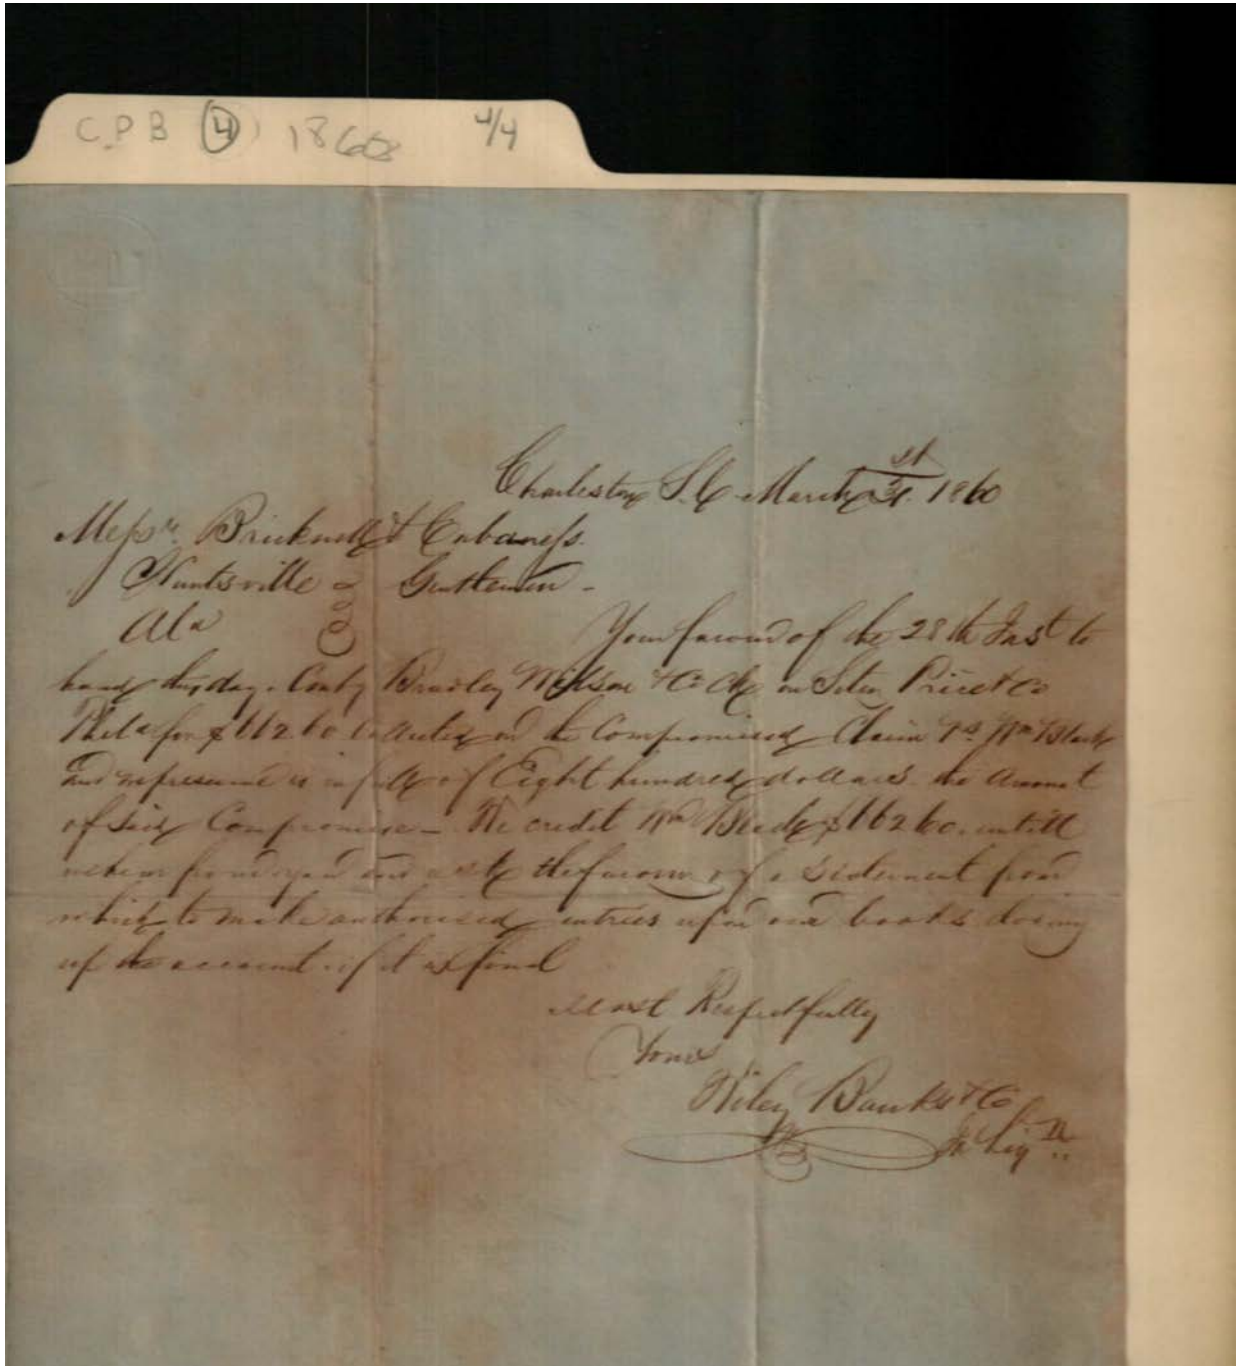 C.P.B (4) 1860 4/4
Charleston S.C. March 31st 1860
Messrs. Bricknell & Cabaness.
Huntsville Gentlemen -
Ala Your favour of the 28th Inst to
hand this day. Bradley Wilson & Co Ck on Price & Co
for $662.60 Collected on the Compromised Claim Wm
and represented in full of Eight hundred dollars. the amount
of Said Compromise - We credit Wm $662.60. untill
we hear from you and ask the favour of a Statement from
which to make authorised entries upon our books closing
up the account. if it is final
Most Respectfully
Yours
Wiley Banks & Co
In Liqn